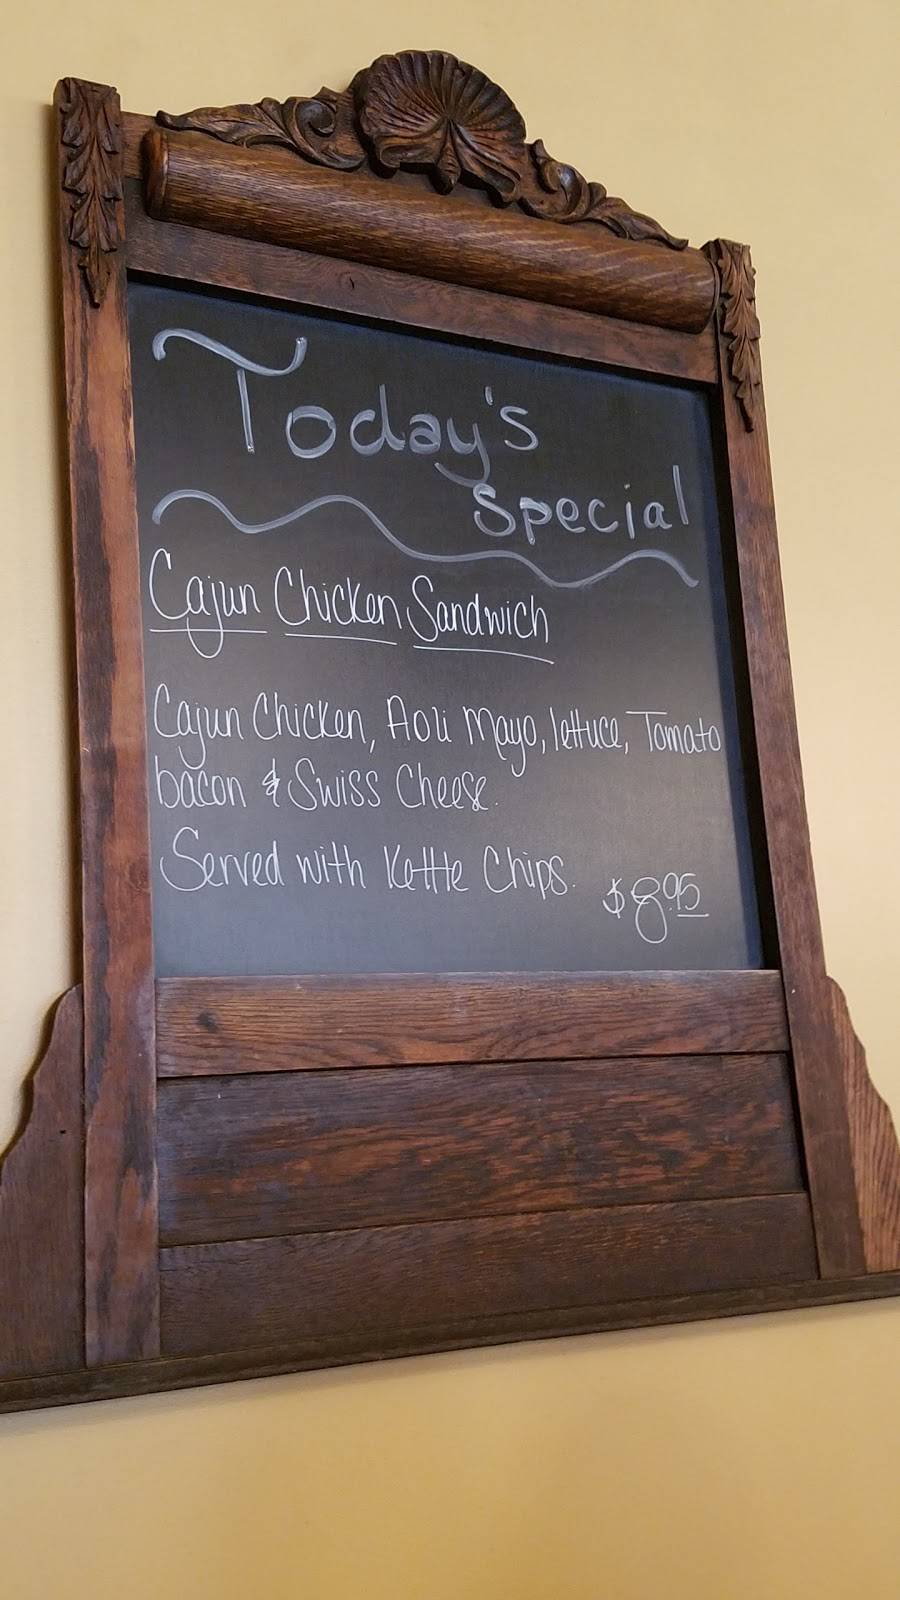 Today's
Special
Cajun Chicken Sandwich
Cajun Chicken, Aoli Mayo, lettuce, Tomato
bacon & Swiss Cheese.
Served with Kettle Chips.
$8.95